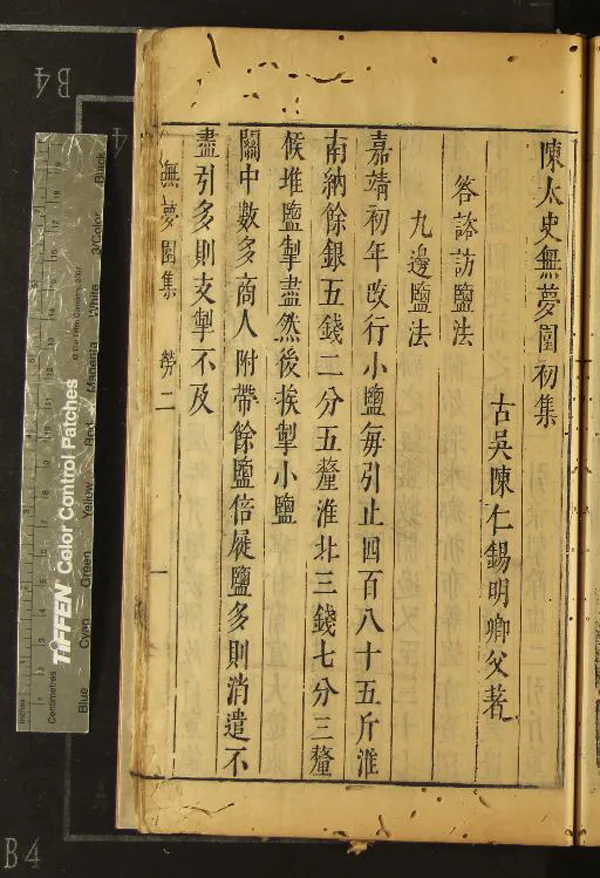 陳太史無夢園初集
古吳陳仁錫明卿父著
答諮訪鹽法
九邊鹽法
嘉靖初年改行小鹽每引止四百八十五斤淮
南納餘銀五錢二分五釐淮北三錢七分三釐
候堆鹽掣盡然後挨掣小鹽
關中數多商人附帶餘鹽倍屣鹽多則消遣不
盡引多則支掣不及
無夢園集 勞二 一
B4
B4
4
TIFFEN Color Control Patches
© The Tiffen Company, 2007
Inches
Centimetres
Blue
Cyan
Green
Yellow
Red
Magenta
White
3/Color
Black